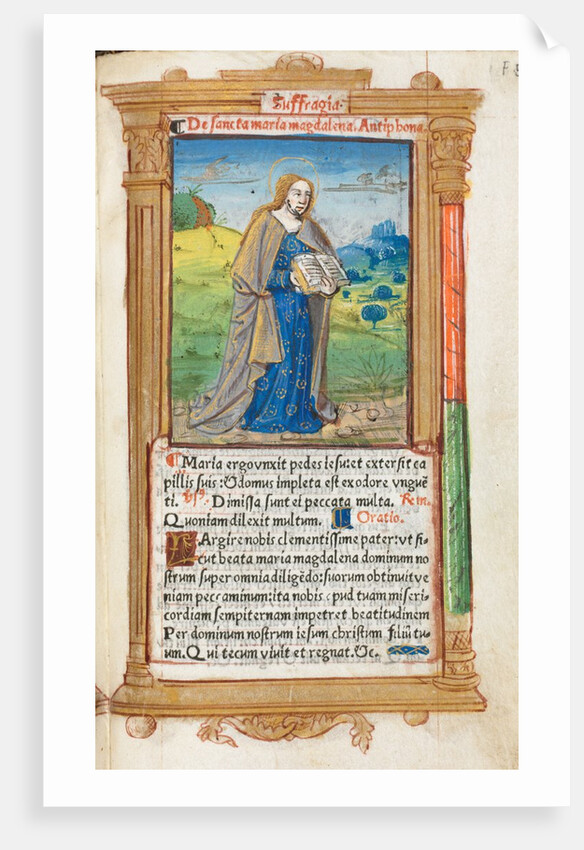 Suffragia.
¶ De sancta maria magdalena. Antiphona.
¶ Maria ergo vnxit pedes iesu: et extersit ca
pillis suis: & domus impleta est ex odore vnguē
ti. Dimissa sunt ei peccata multa.
Quoniam dilexit multum. Oratio.
Largire nobis clementissime pater: vt si
cut beata maria magdalena dominum no
strum super omnia diligēdo: suorum obtinuit ve
niam peccaminum: ita nobis apud tuam miseri
cordiam sempiternam impetret beatitudinem
Per dominum nostrum iesum christum filiū tu
um. Qui tecum viuit et regnat. &c.